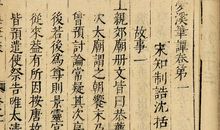 夢溪筆譚卷第一
宋知制誥沈括
故事一
上親郊廟冊文皆曰恭薦
次太廟謂之朝饗末乃
曾預討論常疑其次序
後若後為尊則景靈
從來蓋有所因按唐故
皆預遣使祭告唯太清